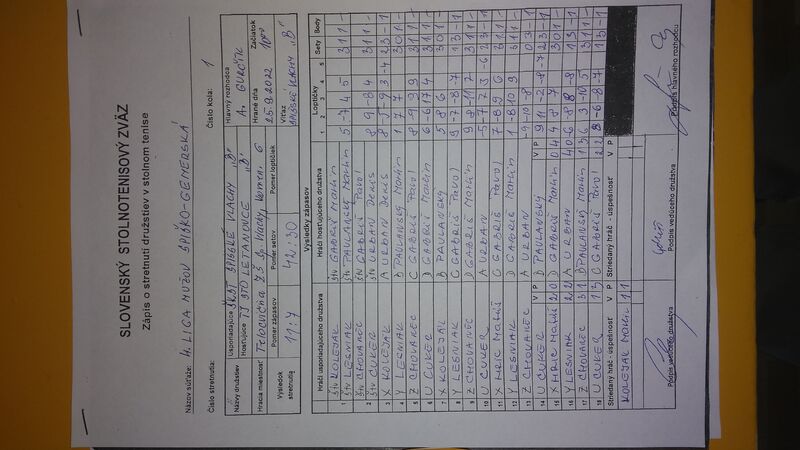 SLOVENSKÝ STOLNOTENISOVÝ ZVÄZ
Zápis o stretnutí družstiev v stolnom tenise
Názov súťaže: 4. LIGA MUŽOV SPIŠSKO-GEMERSKÁ
Číslo stretnutia: Číslo kola: 1
Názvy družstiev Usporiadajúce ŠKST SPIŠSKÉ VLACHY "B" Hlavný rozhodca
Hosťujúce TJ STO LETANOVCE "B" A. GURČÍK
Hracia miestnosť Telocvičňa ZŠ Sp. Vlachy, Komen. 6 Hrané dňa Začiatok
25.9.2022 10°°
Výsledok stretnutia Pomer zápasov Pomer setov Pomer loptičiek Víťaz
11:7 42:30 SPIŠSKÉ VLACHY "B"
Výsledky zápasov
Hráči usporiadajúceho družstva Hráči hosťujúceho družstva Loptičky Sety Body
1 2 3 4 5
štv KOLEJAK štv GABRIŠ Martin
1 štv LESNIAK štv PAULANSKÝ Martin 5 -7 4 5 3 1 1 -
štv CHOVANEC štv GABRIŠ Pavol
2 štv CUKER štv URBAN Denis 8 9 -8 4 3 1 1 -
3 X KOLEJAK A URBAN Denis
4 Y LESNIAK B PAULANSKÝ Martin 1 7 7 3 0 1 -
5 Z CHOVANEC C GABRIŠ Pavol 8 -9 9 9 3 1 1 -
6 U CUKER D GABRIŠ Martin 6 -6 17 4 3 1 1 -
7 X KOLEJAK B PAULANSKÝ 5 8 6 3 0 1 -
8 Y LESNIAK C GABRIŠ Pavol 9 -7 -8 -7 1 3 - 1
9 Z CHOVANEC D GABRIŠ Martin 9 8 -11 7 3 1 1 -
10 U CUKER A URBAN -5 -7 7 3 -6 2 3 - 1
11 X HRIC Matúš C GABRIŠ Pavol 3 1 1 -
12 Y LESNIAK D GABRIŠ Martin 1 -8 10 9 3 1 1 -
13 Z CHOVANEC A URBAN -9 -10 -8 0 3 - 1
14 U CUKER V P B PAULANSKÝ V P 9 11 -2 -8 -7 2 3 - 1
15 X HRIC Matúš 2 0 D GABRIŠ Martin 0 4 4 8 7 3 0 1 -
16 Y LESNIAK 2 2 A URBAN 4 0 -6 -8 8 -8 1 3 - 1
17 Z CHOVANEC 3 1 B PAULANSKÝ Martin 1 3 6 3 -10 5 3 1 1 -
18 U CUKER 1 3 C GABRIŠ Pavol 2 2 8 -6 -8 -7 1 3 - 1
Striedaný hráč - úspešnosť V P Striedaný hráč - úspešnosť V P
KOLEJAK Martin 1 1
Podpis vedúceho družstva Podpis vedúceho družstva Podpis hlavného rozhodcu